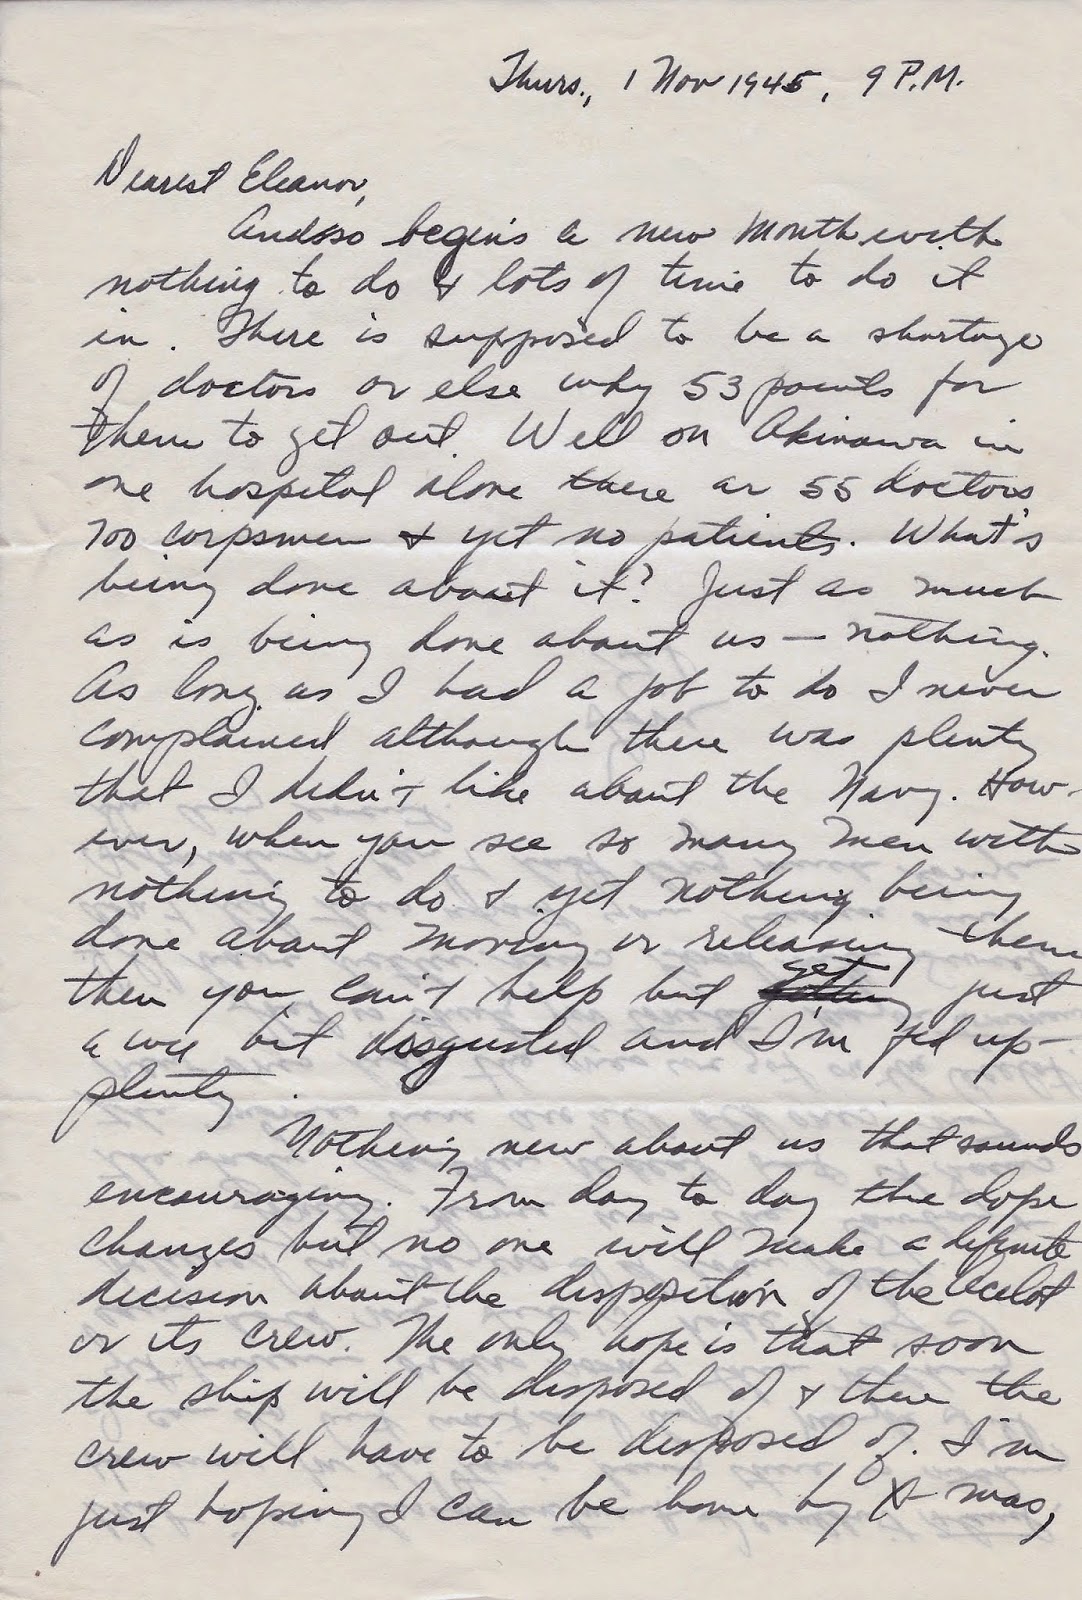 Thurs., 1 Nov 1945, 9 P.M.
Dearest Eleanor,
And so begins a new month with
nothing to do & lots of time to do it
in. There is supposed to be a shortage
of doctors or else why 53 points for
them to get out. Well on Okinawa in
one hospital alone there are 55 doctors
700 corpsmen & yet no patients. What's
being done about it? Just as much
as is being done about us — nothing.
As long as I had a job to do I never
complained although there was plenty
that I didn't like about the Navy. How-
ever, when you see so many men with
nothing to do & yet nothing being
done about moving or releasing them
then you can't help but get just
a wee bit disgusted and I'm fed up —
plenty.
Nothing new about us that sounds
encouraging. From day to day the dope
changes but no one will make a definite
decision about the disposition of the Ocelot
or its crew. The only hope is that soon
the ship will be disposed of & then the
crew will have to be disposed of. I'm
just hoping I can be home by Xmas,